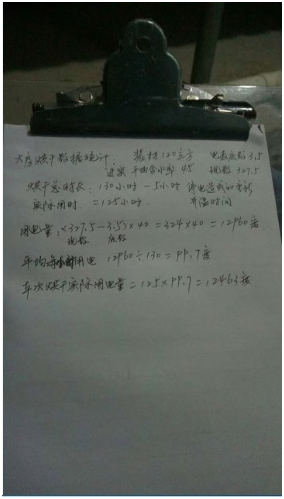 烘干数据统计: 装材120立方 电表底数3.5
进窑平均含水率45 现数327.5
烘干总时长: 130小时-5小时 停电造成的重新
实际用时: =125小时. 升温时间
用电量: (327.5-3.5)×40=324×40=12960度
现数 底数
平均每小时用电 12960÷130=99.7度
车次烘干实际用电量=125×99.7=12463度